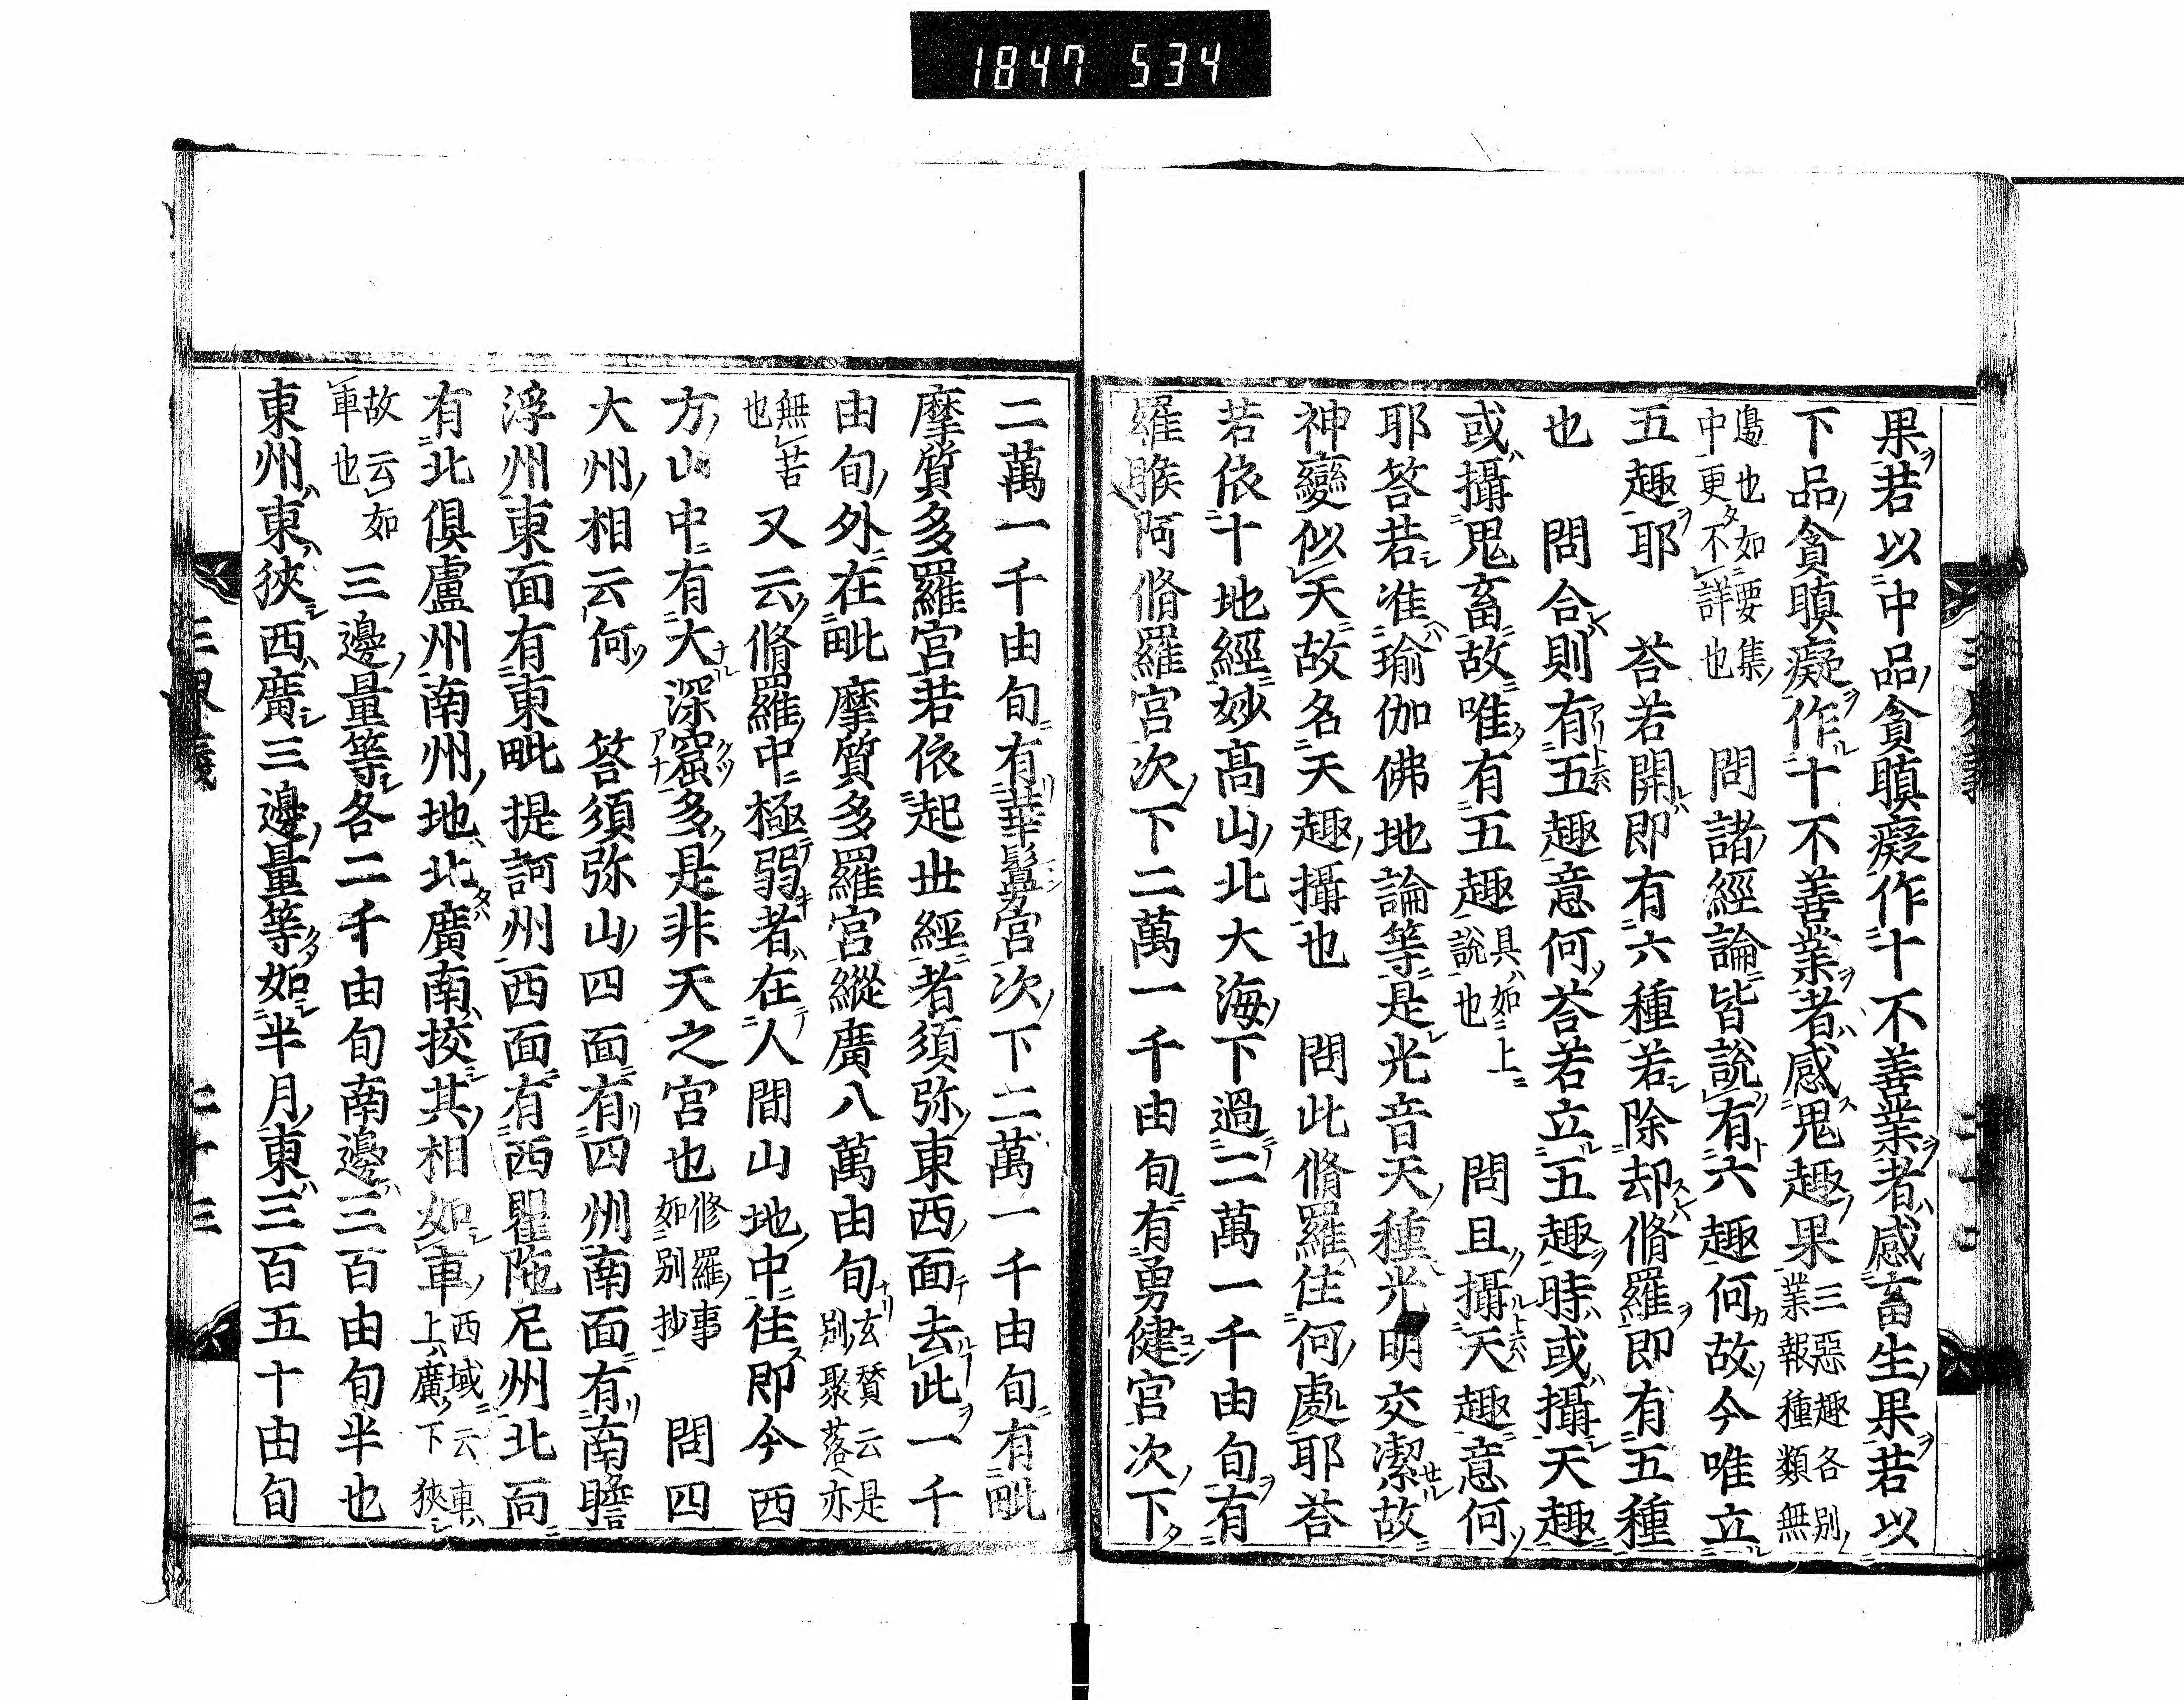 1847 534
果若以中品貪瞋癡作十不善業者感畜生果若以
下品貪瞋癡作十不善業者感鬼趣果三惡趣各別業報種類無
邊也如要集中更不詳也 問諸經論皆説有六趣何故今唯立
五趣耶 荅若開即有六種若除却脩羅即有五種
也 問合則有五趣意何荅若立五趣時或攝天趣
或攝鬼畜故唯有五趣具如上説也 問且攝天趣意何
耶荅若准瑜伽佛地論等是光音天種光明交潔故
神變似天故名天趣攝也 問此脩羅住何處耶荅
若依十地經妙高山北大海下過二萬一千由旬有
羅睺阿脩羅宮次下二萬一千由旬有勇健宮次下
二萬一千由旬有華鬘宮次下二萬一千由旬有毗
摩質多羅宮若依起世經者須弥東西面去此一千
由旬外在毗摩質多羅宮縱廣八萬由旬玄賛云是別聚落亦
無苦也 又云脩羅中極弱者在人間山地中住即今西
方山中有大深窟多是非天之宮也修羅事如別抄 問四
大州相云何 荅須弥山四面有四州南面有南贍
浮州東面有東毗提訶州西面有西瞿陁尼州北面
有北俱盧州南州地北廣南挍其相如車西域云車上廣下狹
故云如車也 三邊量等各二千由旬南邊三百由旬半也
東州東狹西廣三邊量等如半月東三百五十由旬
三界義
二十三